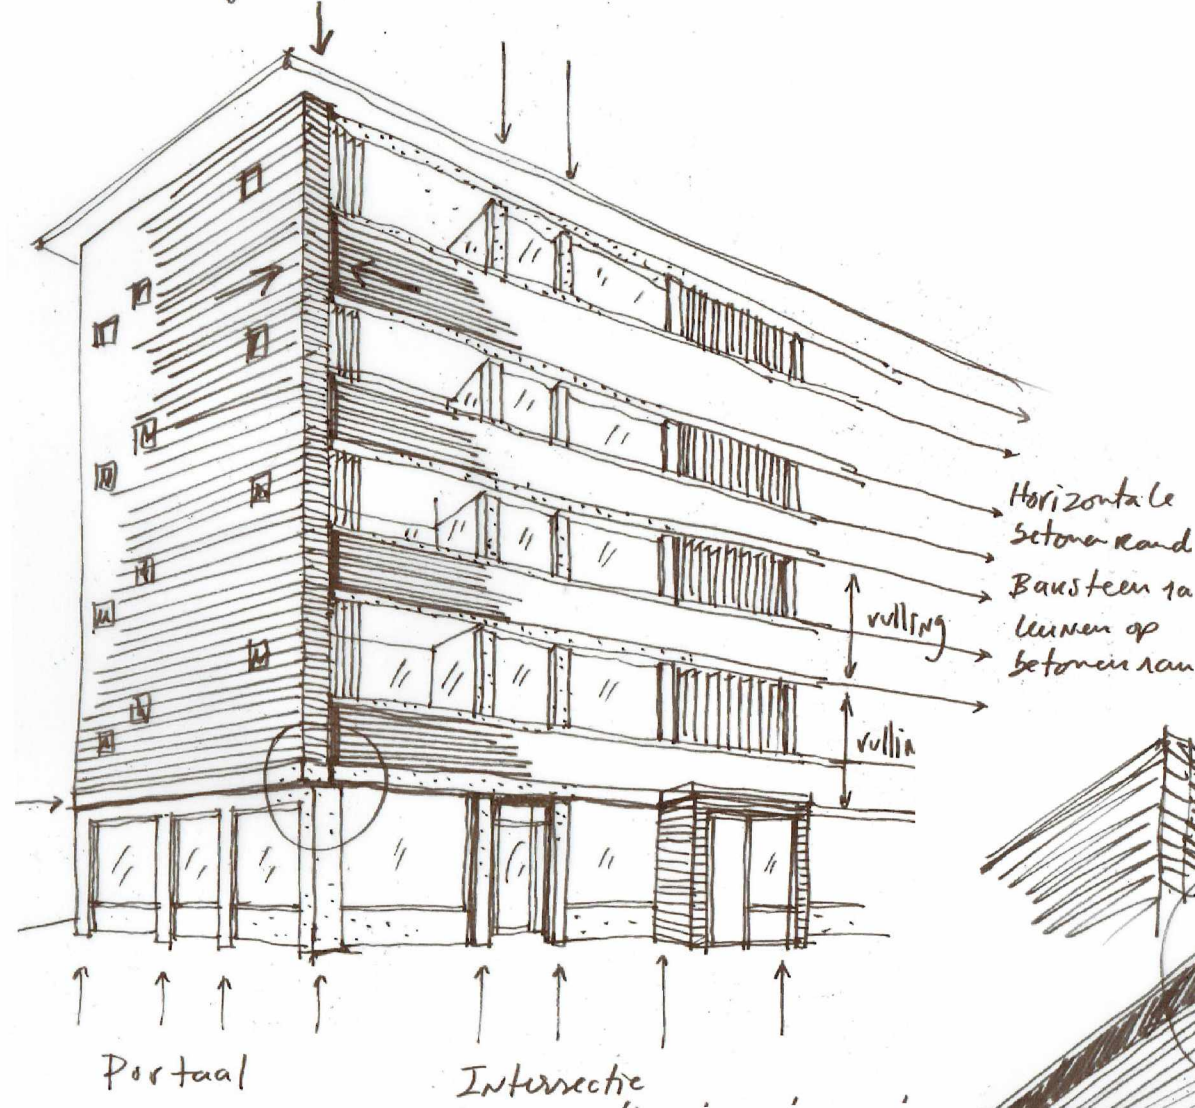 Horizontale
betonen rand
Baksteen
leunen op
betonen ran
vulling
vullin
Portaal
Intersectie